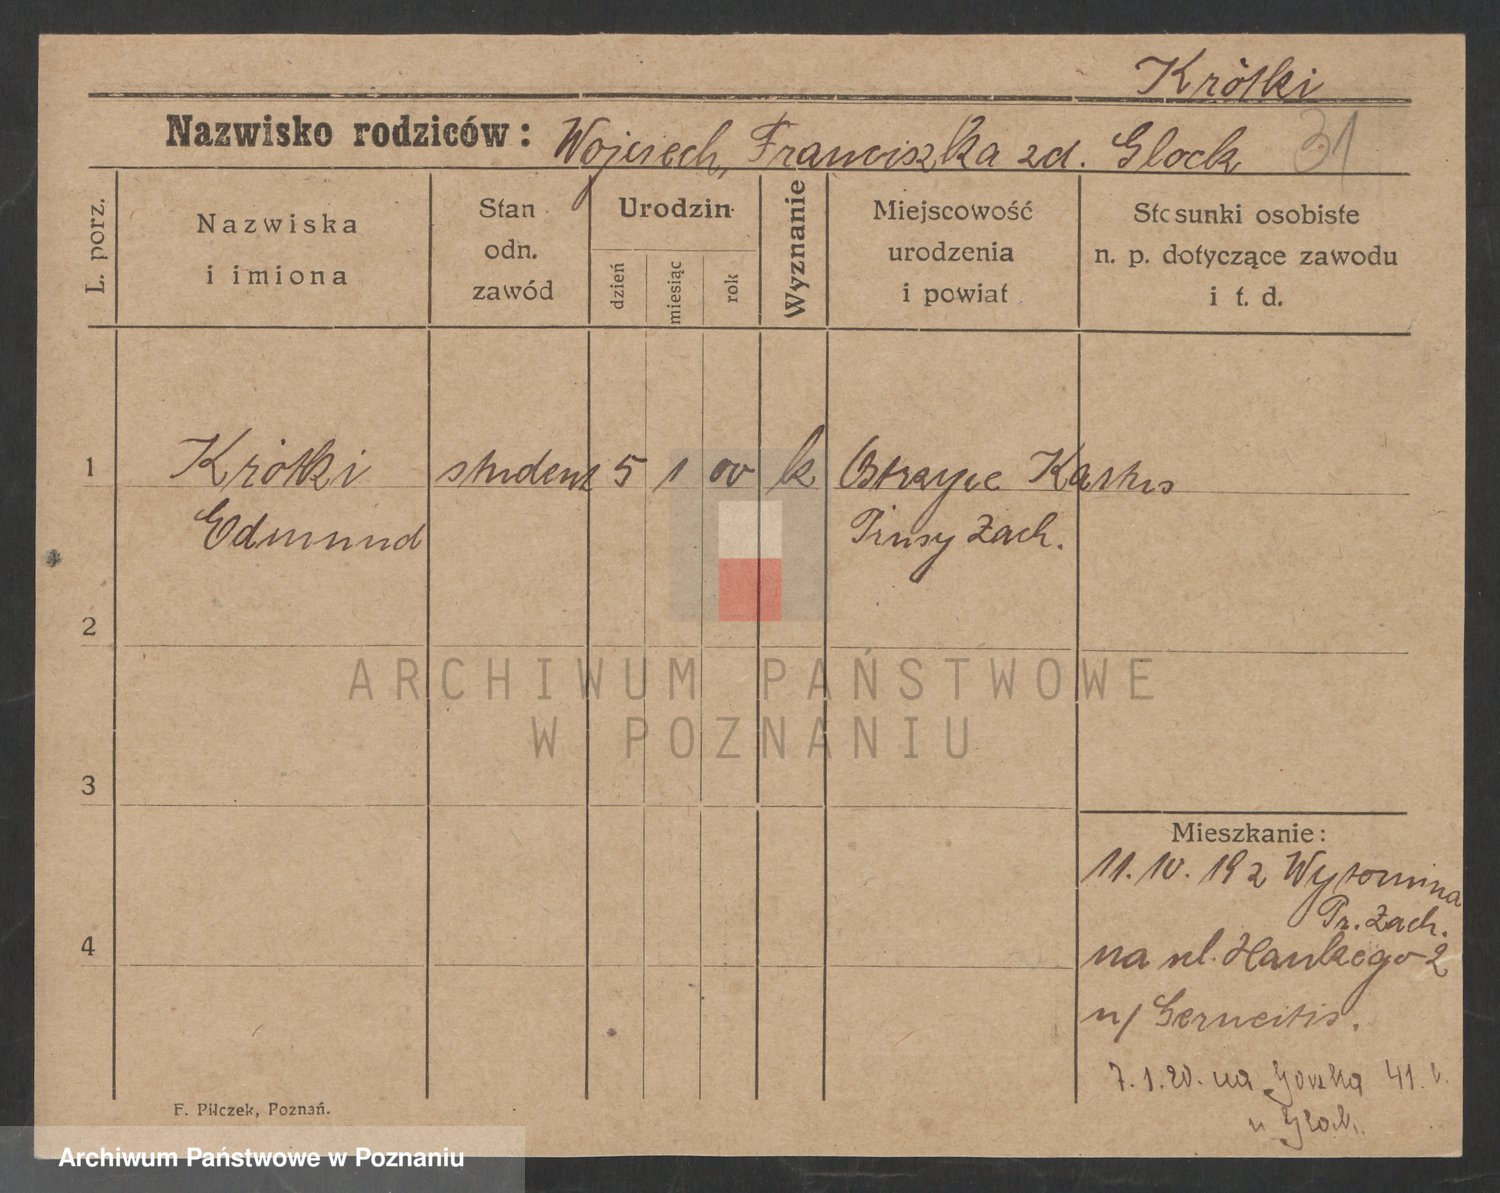 Krótki
Nazwisko rodziców: Wojciech, Franciszka zd. Glock 31
L. porz.
Nazwiska i imiona
Stan odn. zawód
Urodzin
dzień
miesiąc
rok
Wyznanie
Miejscowość urodzenia i powiat
Stosunki osobiste n. p. dotyczące zawodu i t. d.
1 Krótki student 5 1 00 k Ostrzyce
Edmund Prusy Zach.
2
ARCHIWUM PAŃSTWOWE
W POZNANIU
3
Mieszkanie:
11. 10. 19 z Wytomina
Pr. Zach.
4
na ul. Haukego 2
u/
7. 1. 20. na 41.
F. Pilczek, Poznań.
Archiwum Państwowe w Poznaniu